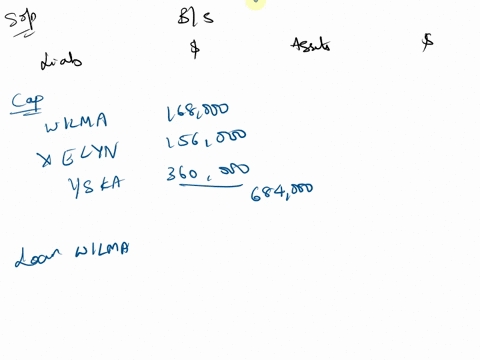 Solp B/S
Liab $ Assets $
Cap
WILMA 168,000
XELYN 156,000
YSKA 360,000
684,000
Loan WILMA